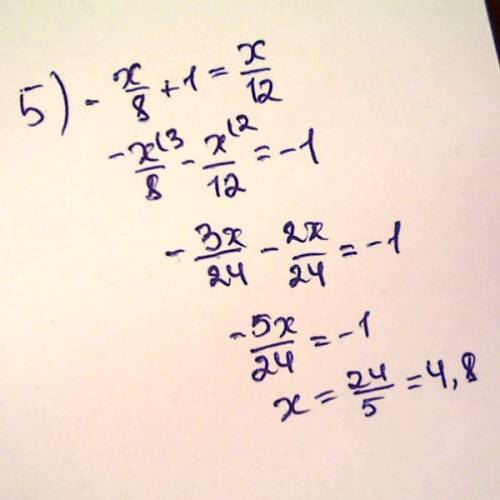 5) - x/8 + 1 = x/12
- x⁽³/8 - x⁽²/12 = -1
- 3x/24 - 2x/24 = -1
- 5x/24 = -1
x = 24/5 = 4,8